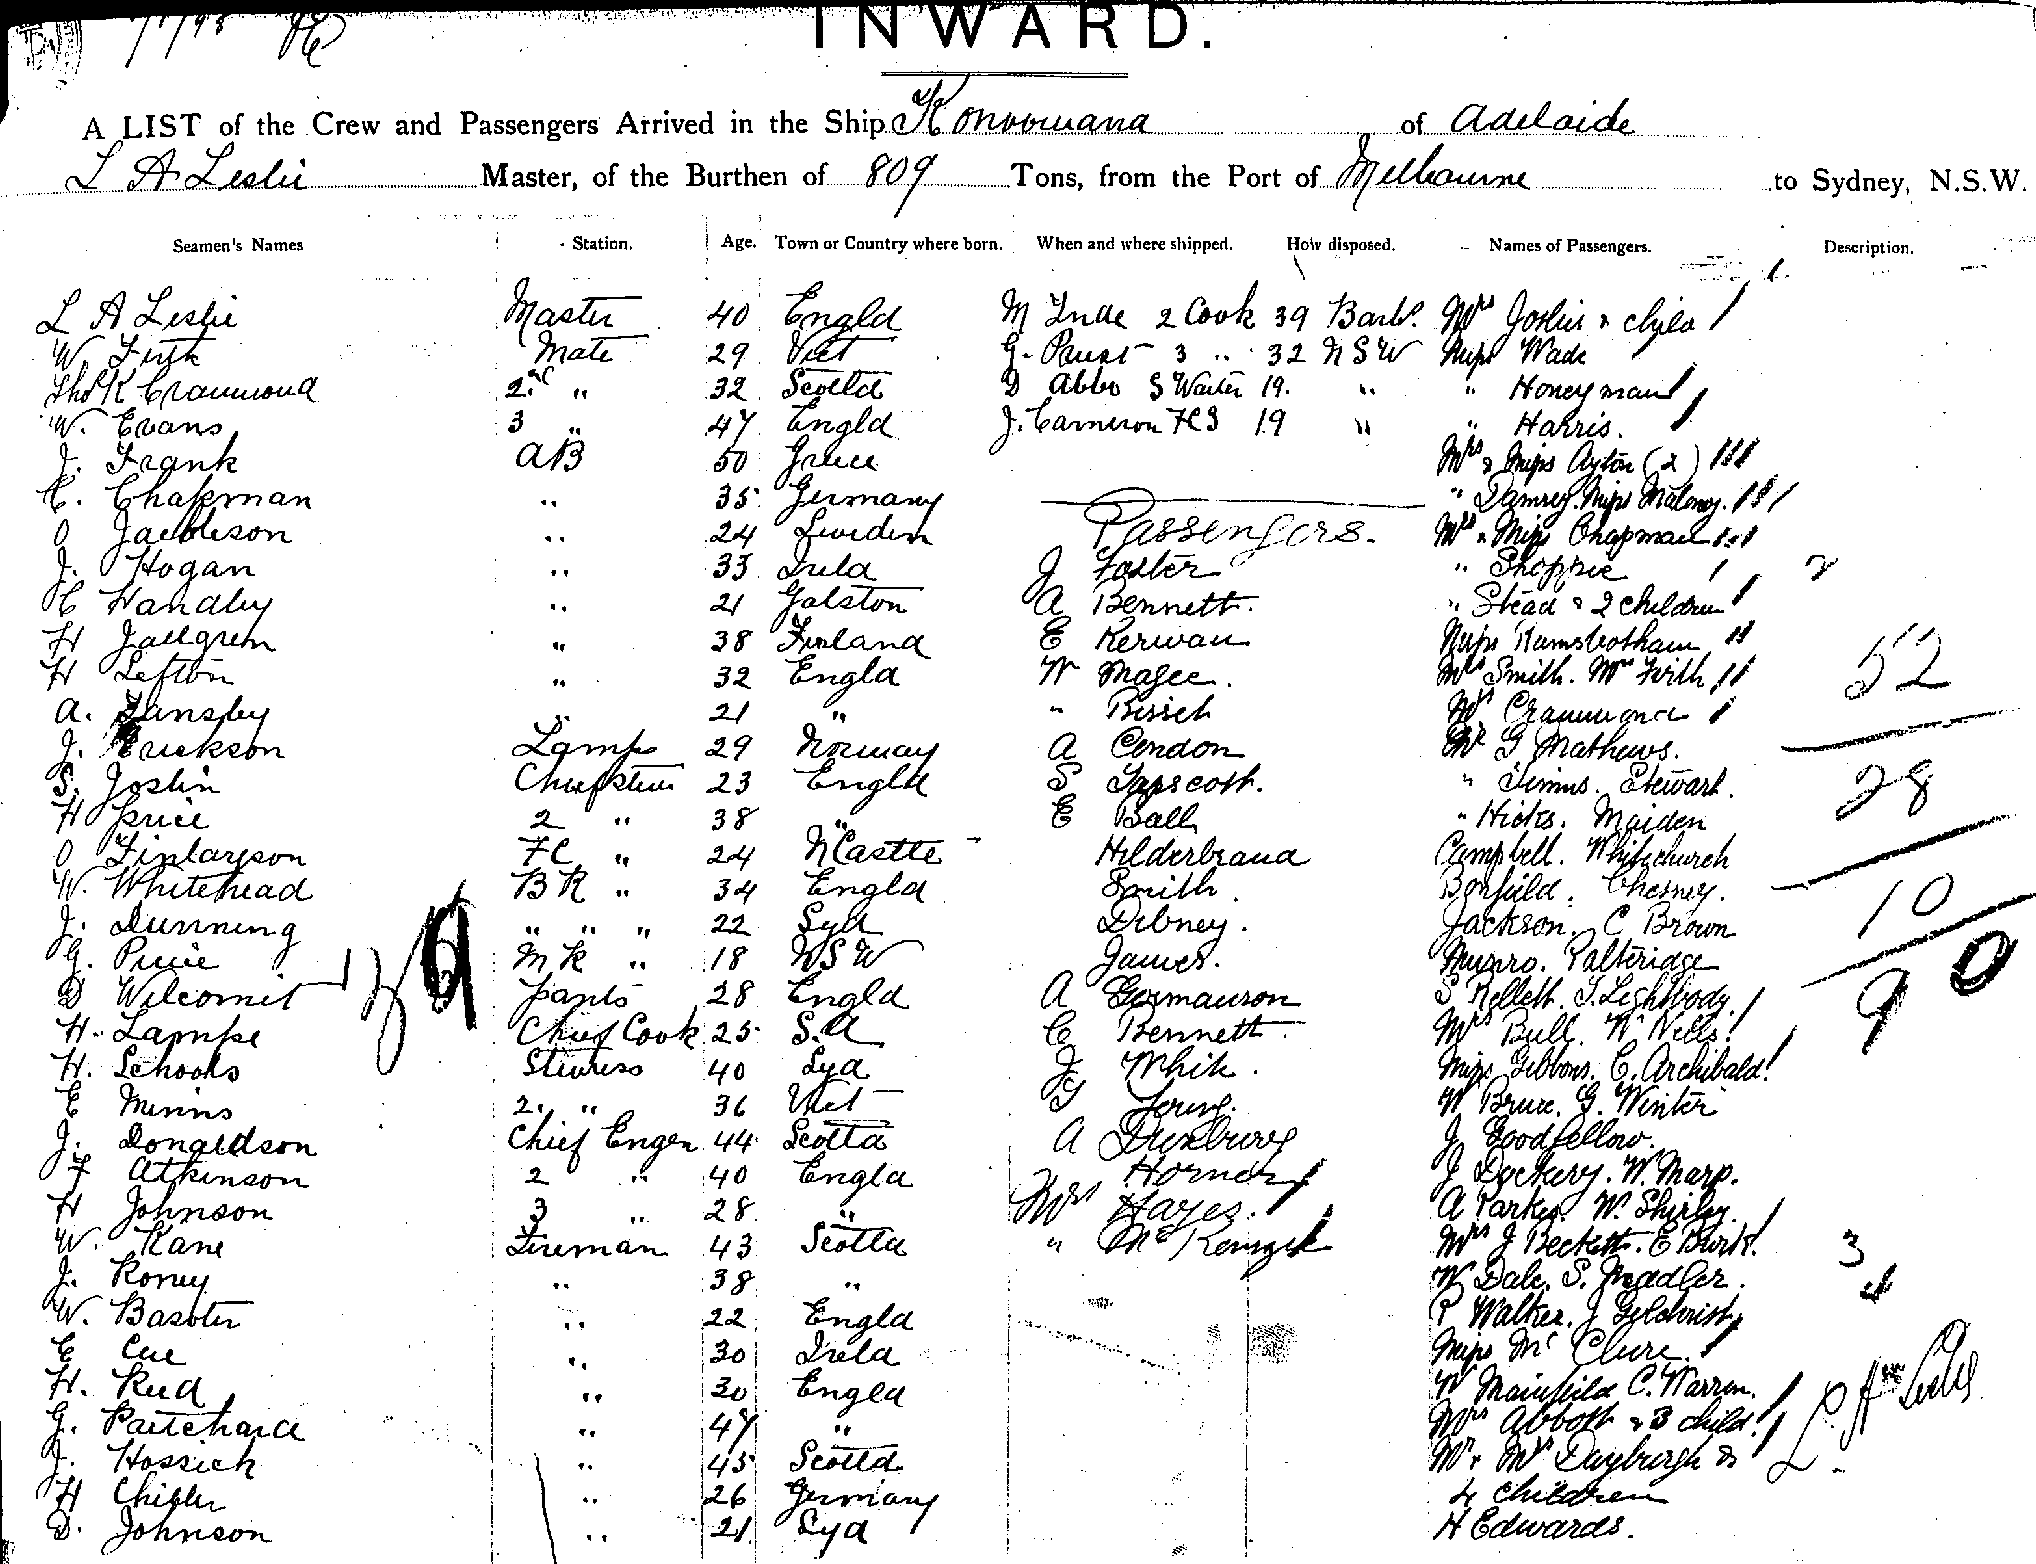 INWARD.
A LIST of the Crew and Passengers Arrived in the Ship Konoowana of Adelaide
L A Leslie Master, of the Burthen of 809 Tons, from the Port of Melbourne to Sydney, N.S.W.
Seamen's Names Station. Age. Town or Country where born. When and where shipped. How disposed. Names of Passengers. Description.
L A Leslie Master 40 Engld M Inde 2 Cook 39 Barbs. Mrs Joslin & child
W. Firth Mate 29 Vict G. 3 " 32 N S W Miss Wade
Thos K Crammond 2nd " 32 Scotld D Abbo S Waiter 19. " " Honeyman
W. Evans 3 " 47 Engld J. Cameron 19 " " Harris.
J. Frank AB 50 Greece Mrs & Miss Ayton (2)
C. Chapman " 35 Germany " Damrey. Miss Maloney.
O Jacobson " 24 Sweden Passengers. Mrs & Miss Chapman
J. Hogan " 33 Ireld J Foster " Shoppee 2
C Handley " 21 Galston A Bennett. " Stead & 2 children
H Jallgren " 38 Finland E Kerwan Miss Ramsbotham
H Lefton " 32 Engld W Magee. Mrs Smith. Mrs Firth 52
A. Tansley " 21 " " Birrich Mrs Crammond
J. Erickson Lamps 29 Norway A Condon Mr G Mathews.
S. Joslin Chief Stew 23 Engld S Tapscott. " Timms. Stewart. 28
H Price 2 " 38 " E Ball " Hicks. Maiden
O Finlayson FC " 24 NCastle Hilderbrand Campbell. Whitechurch
W. Whitehead BR " 34 Engld Smith. Bonfield. Chesney.
J. Dunning " " " 22 Syd Dibney. Jackson. C Brown 10
G. Price MK " 18 NSW James. Munro. Palteridge
D Wilcomit Pants 28 Engld A Germanson S Kellett. T. Lightbody. 90
H. Lampe Chief Cook 25 S.A C Bennett. Mrs Bull. W Wells.
H. Schools Stewress 40 Syd J White. Miss Gibbons. C. Archibald.
E Minns 2. " 36 Vict Young. W Bruce. G. Winter
J. Donaldson Chief Engnr 44 Scotld A Duxbury J Goodfellow.
F Atkinson 2 " 40 Engld Horner J Dockery. W. Marp.
H Johnson 3 " 28 " Mrs Hayes. A Parker. W. Shirley.
W. Kane Fireman 43 Scotld " McKenzie Mrs J Beckett. E Burk. 3
J. Roney " 38 " W Dale. S. Sadler.
W. Baxter " 22 Engld P Walker. J Gilchrist
C Cue " 30 Ireld Miss McClure.
H. Reed " 30 Engld W Mainfield C. Warren.
G. Pritchard " 47 " Mrs Abbott & 3 child.
J. Hossich " 45 Scotld Mr & Mrs Duyburgh &
H Chibler " 26 Germany 4 children
D. Johnson " 21 Syd H Edwards.